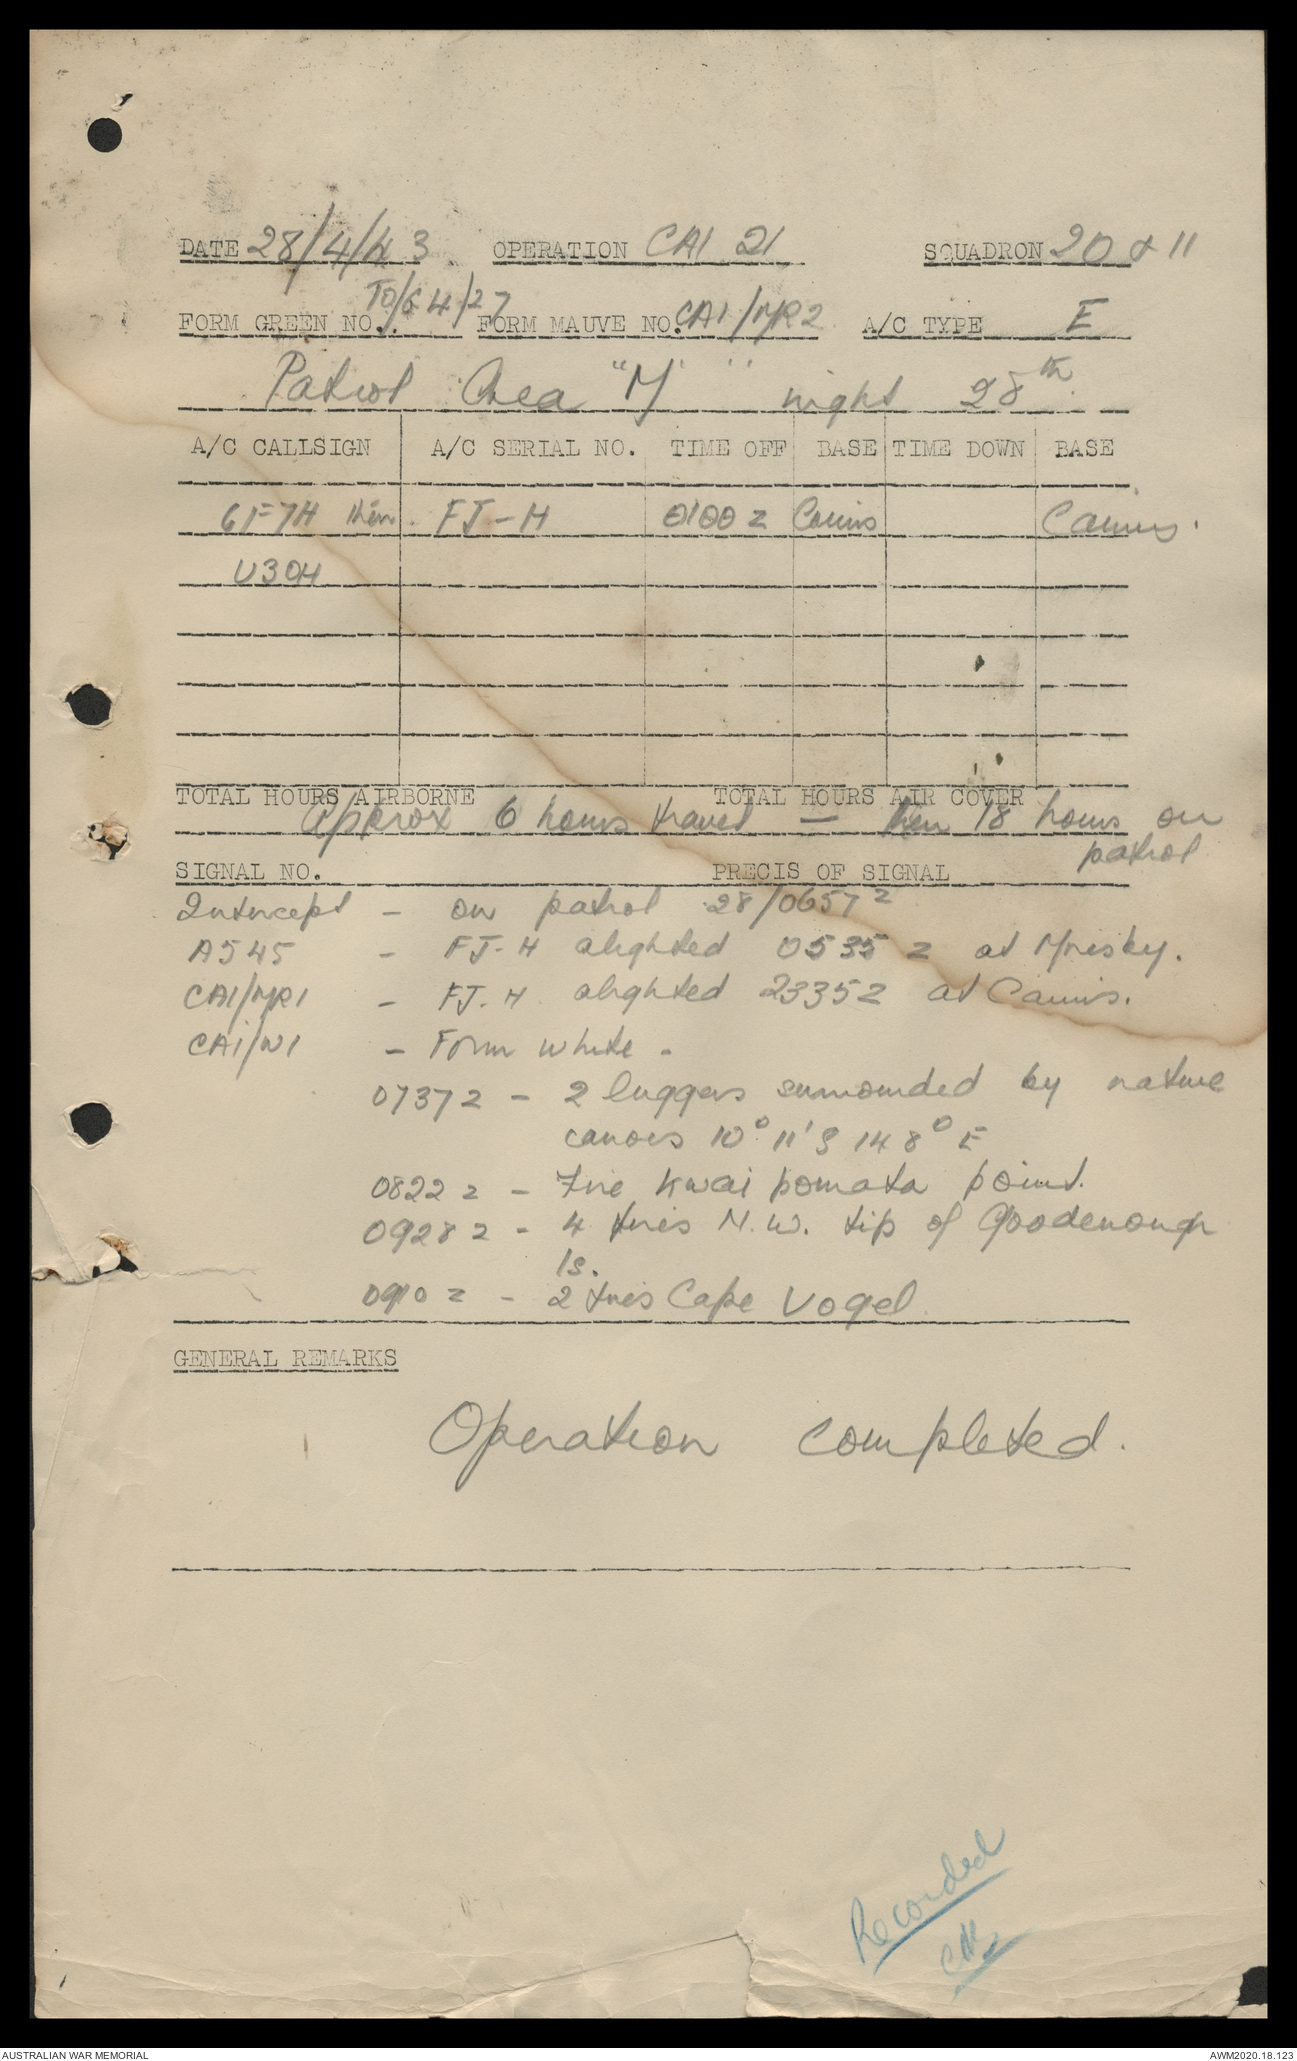 DATE 28/4/43 OPERATION CAI 21 SQUADRON 20 & 11
TO/G 4/27
FORM GREEN NO. FORM MAUVE NO. CAI/MR2 A/C TYPE E
Patrol Area "M" night 28th
A/C CALLSIGN A/C SERIAL NO. TIME OFF BASE TIME DOWN BASE
6F7H then FJ-H 0100 Z Cairns Cairns.
U3OH
TOTAL HOURS AIRBORNE TOTAL HOURS AIR COVER
Approx 6 hours travel — then 18 hours on
patrol
SIGNAL NO. PRECIS OF SIGNAL
Intercept - on patrol 28/0657Z
A545 - FJ-H alighted 0535 Z at Mresby.
CAI/MR1 - FJ.H alighted 2335Z at Cairns.
CAI/W1 - Form white -
0737Z - 2 luggers surrounded by native
canoes 10° 11'S 148° E
0822 Z - Fire Kwaipomata point.
0928 Z - 4 fires N.W. tip of Goodenough
Is.
0910 Z - 2 fires Cape Vogel
GENERAL REMARKS
Operation completed.
Recorded
AUSTRALIAN WAR MEMORIAL AWM2020.18.123